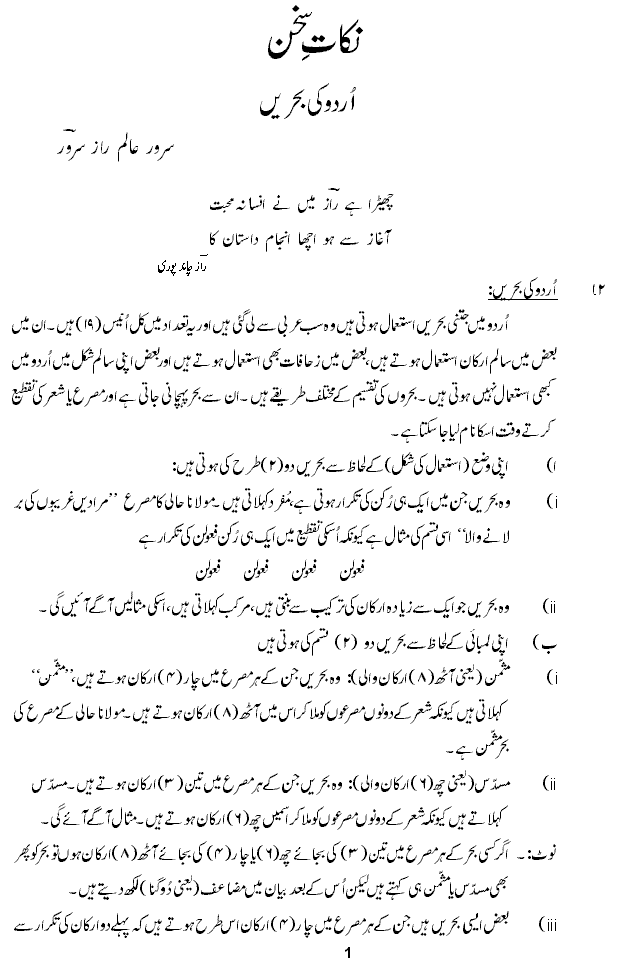 نکاتِ سخن
اُردو کی بحریں
سرور عالم راز سرورؔ
چھیڑا ہے رازؔ میں نے افسانہ محبت
آغاز سے ہو اچھا انجام داستان کا
رازؔ چاند پوری
۲ا اُردو کی بحریں:
اُردو میں جتنی بحریں استعمال ہوتی ہیں وہ سب عربی سے لی گئی ہیں اور یہ تعداد میں کل اُنیس (۱۹) ہیں۔ ان میں
بعض میں سالم ارکان استعمال ہوتے ہیں، بعض میں زحافات بھی استعمال ہوتے ہیں اور بعض اپنی سالم شکل میں اردو میں
کبھی استعمال نہیں ہوتی ہیں۔ بحروں کی تقسیم کے مختلف طریقے ہیں۔ ان سے بحر پہچانی جاتی ہے اور مصرع یا شعر کی تقطیع
کرتے وقت اسکا نام لیا جا سکتا ہے۔
ا) اپنی وضع (استعمال کی شکل) کے لحاظ سے بحریں دو (۲) طرح کی ہوتی ہیں:
i) وہ بحریں جن میں ایک ہی رُکن کی تکرار ہوتی ہے، مُفرد کہلاتی ہیں۔ مولانا حالی کا مصرع ”مرادیں غریبوں کی بر
لانے والا“ اسی قسم کی مثال ہے کیونکہ اُسکی تقطیع میں ایک ہی رُکن فعولن کی تکرار ہے
فعولن فعولن فعولن فعولن
ii) وہ بحریں جو ایک سے زیادہ ارکان کی ترکیب سے بنتی ہیں، مرکب کہلاتی ہیں، اسکی مثالیں آگے آئیں گی۔
ب) اپنی لمبائی کے لحاظ سے بحریں دو (۲) قسم کی ہوتی ہیں
i) مثمّن (یعنی آٹھ (۸) ارکان والی): وہ بحریں جن کے ہر مصرع میں چار (۴) ارکان ہوتے ہیں، ”مثمّن“
کہلاتی ہیں کیونکہ شعر کے دونوں مصرعوں کو ملا کر اس میں آٹھ (۸) ارکان ہوتے ہیں۔ مولانا حالی کے مصرع کی
بحر مثمّن ہے۔
ii) مسدّس (یعنی چھ (۶) ارکان والی): وہ بحریں جن کے ہر مصرع میں تین (۳) ارکان ہوتے ہیں۔ مسدّس
کہلاتے ہیں کیونکہ شعر کے دونوں مصرعوں کو ملا کر اسمیں چھ (۶) ارکان ہوتے ہیں۔ مثال آگے آئے گی۔
نوٹ:۔ اگر کسی بحر کے ہر مصرع میں تین (۳) کی بجائے چھ (۶) یا چار (۴) کی بجائے آٹھ (۸) ارکان ہوں تو بحر کو پھر
بھی مسدّس یا مثمّن ہی کہتے ہیں لیکن اُس کے بعد بیان میں مضاعف (یعنی دُوگنا) لکھ دیتے ہیں۔
iii) بعض ایسی بحریں ہیں جن کے ہر مصرع میں چار (۴) ارکان اس طرح ہوتے ہیں کہ پہلے دو ارکان کی تکرار سے
1